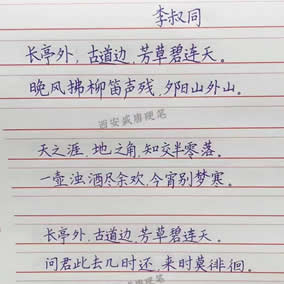 李叔同
长亭外,古道边,芳草碧连天。
晚风拂柳笛声残,夕阳山外山。
西安盛唐硬笔
天之涯,地之角,知交半零落。
一壶浊酒尽余欢,今宵别梦寒。
长亭外,古道边,芳草碧连天。
问君此去几时还,来时莫徘徊。